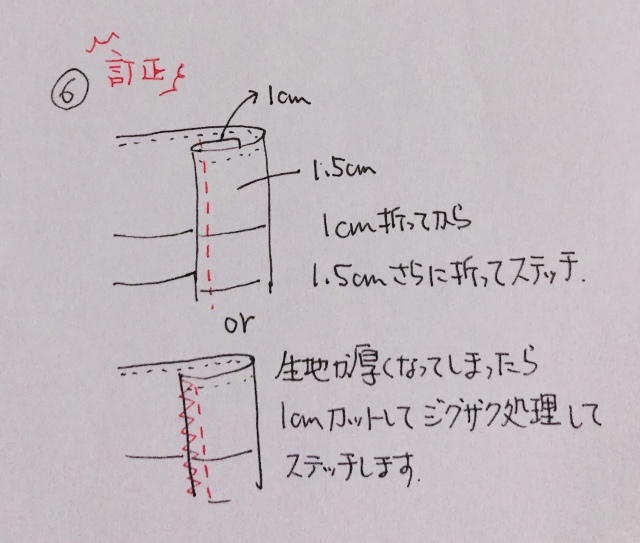 訂正
⑥
1cm
1.5cm
1cm折ってから
1.5cmさらに折ってステッチ.
or
生地が厚くなってしまったら
1cmカットしてジグザク処理して
ステッチします.